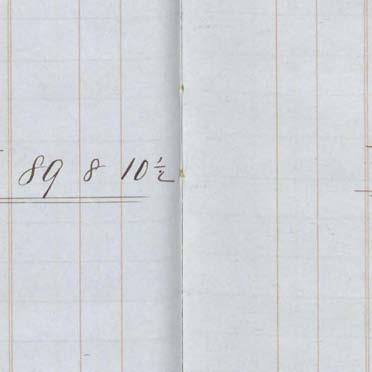 89 8 10½